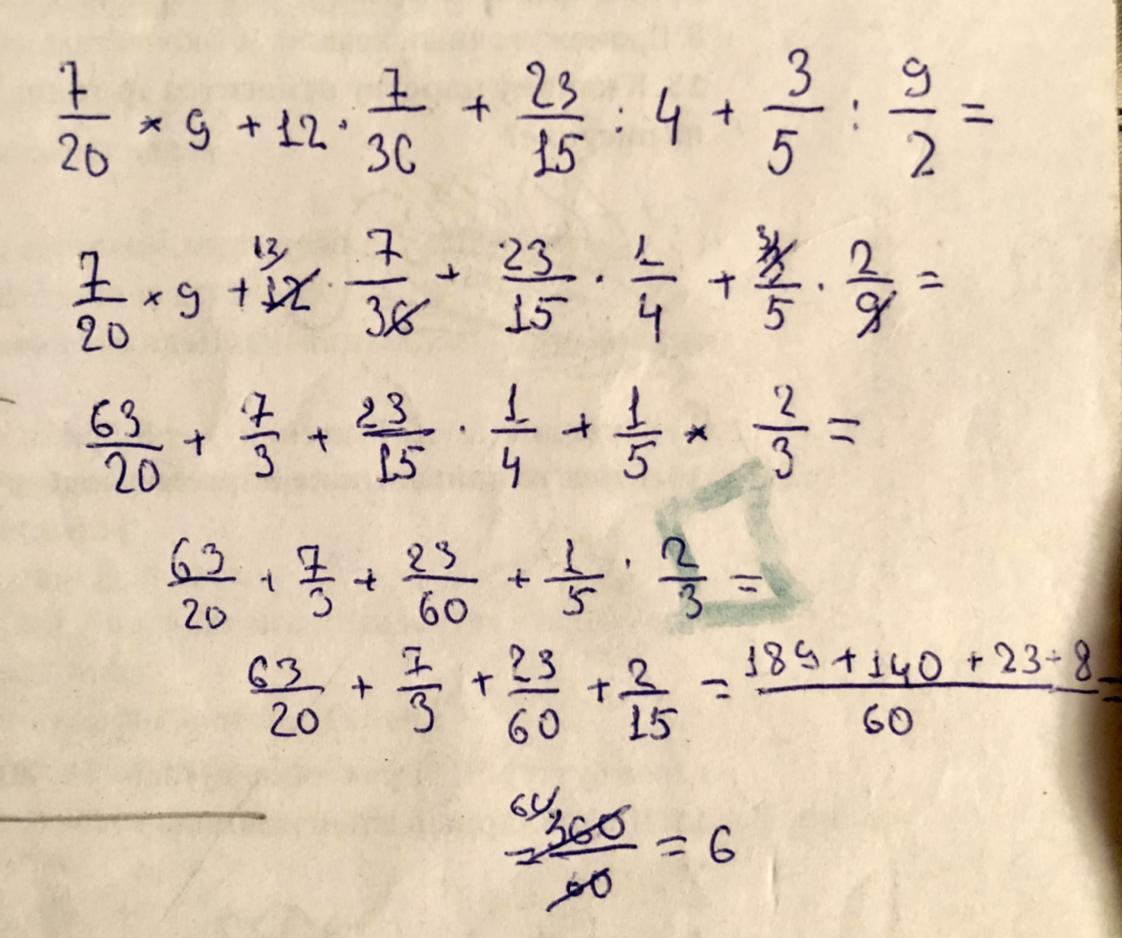 7/20 * 9 + 12 · 7/36 + 23/15 : 4 + 3/5 : 9/2 =
7/20 * 9 + 12 · 7/36 + 23/15 · 1/4 + 3/5 · 2/9 =
63/20 + 7/3 + 23/15 · 1/4 + 1/5 * 2/3 =
63/20 + 7/3 + 23/60 + 1/5 · 2/3 =
63/20 + 7/3 + 23/60 + 2/15 = 189 + 140 + 23 + 8/60 =
= 360/60 = 6